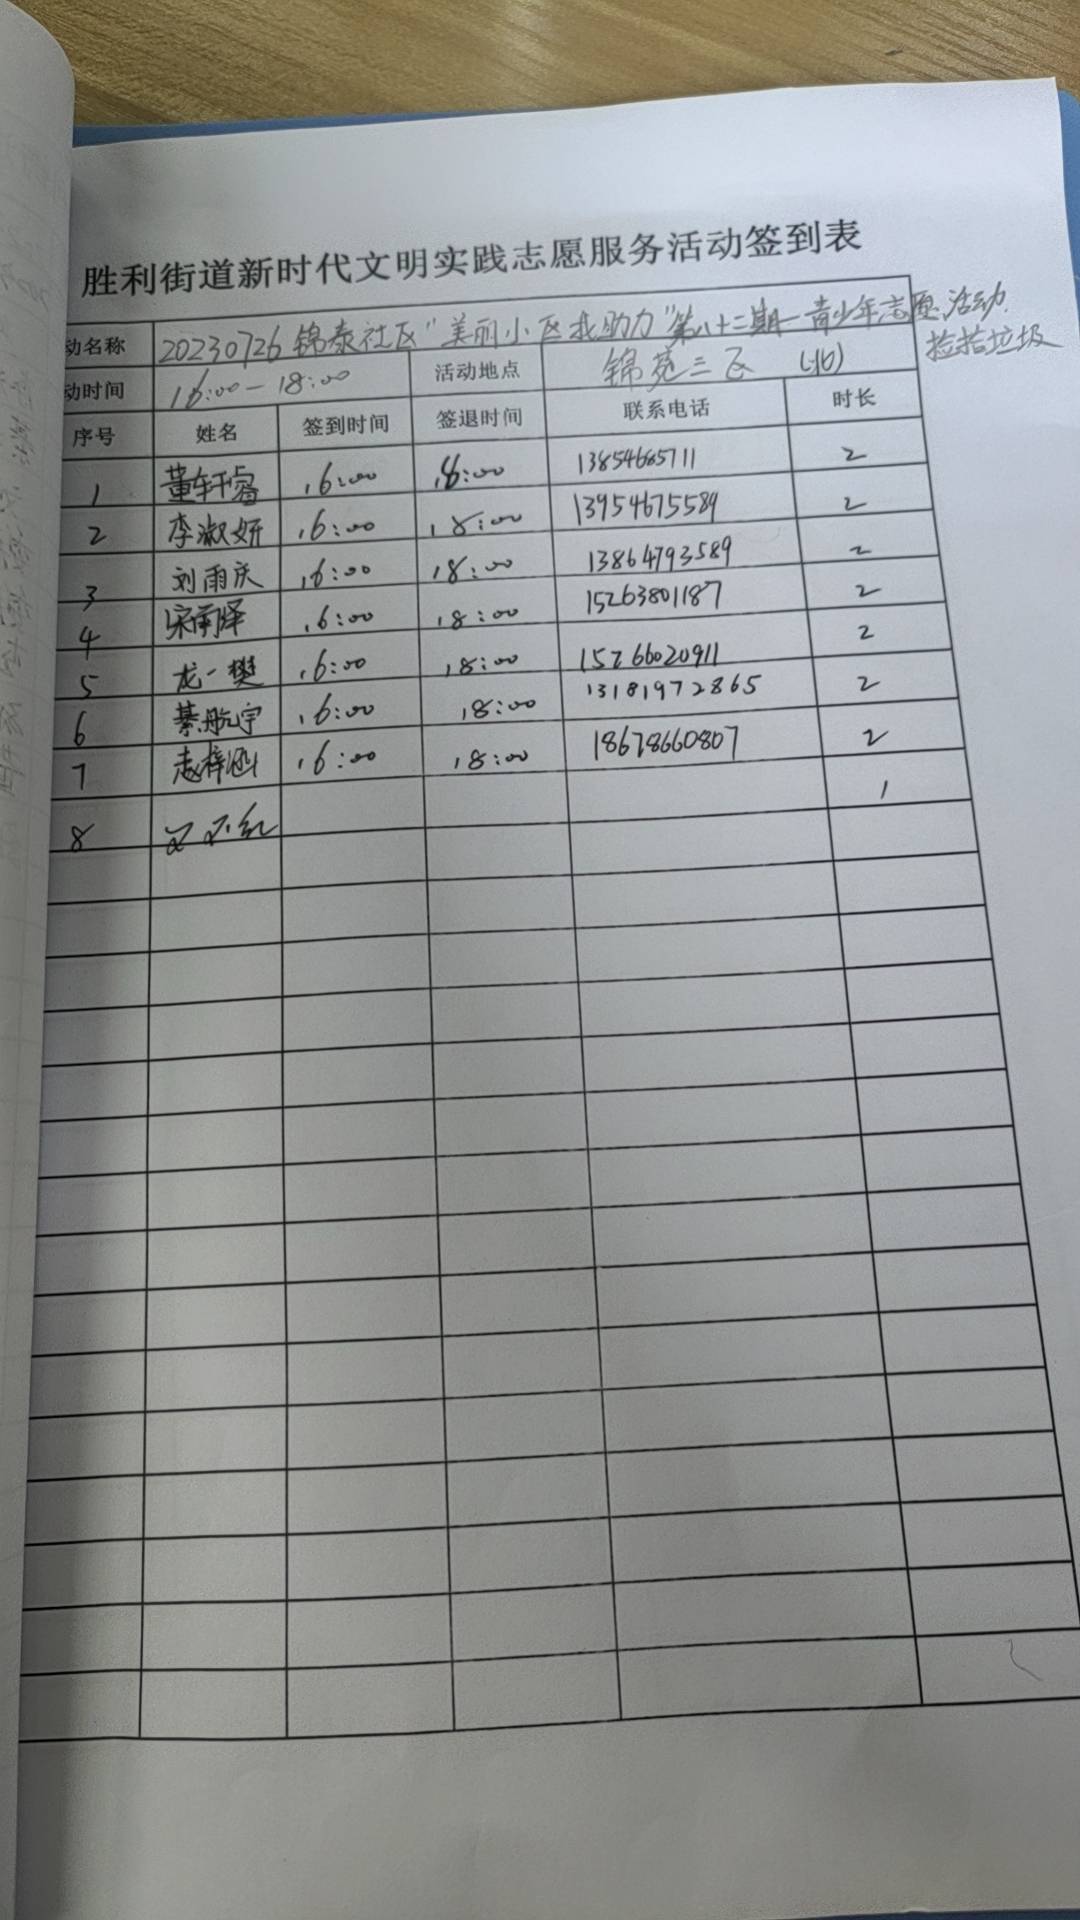 胜利街道新时代文明实践志愿服务活动签到表
动名称 20230726锦泰社区"美丽小区我助力"第八十二期—青少年志愿活动.
捡拾垃圾
动时间 16:00—18:00 活动地点 锦苑三区 (北)
序号 姓名 签到时间 签退时间 联系电话 时长
1 董轩睿 16:00 18:00 13854665711 2
2 李淑妍 16:00 18:00 13954675589 2
3 刘雨庆 16:00 18:00 13864793589 2
4 宋雨泽 16:00 18:00 15263801187 2
5 龙一樊 16:00 18:00 15266020911 2
6 綦航宇 16:00 18:00 13181972865 2
7 赵梓涵 16:00 18:00 18678660807 2
8 1